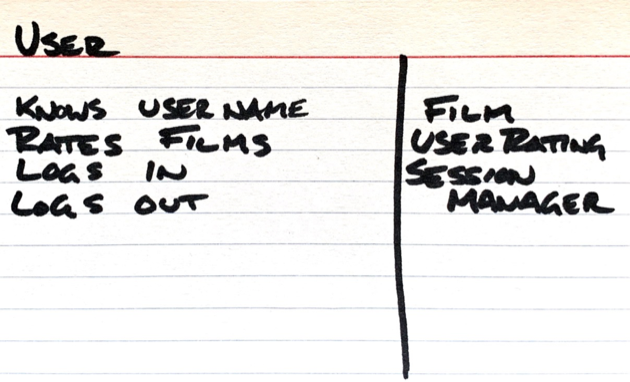 USER
KNOWS USER NAME
RATES FILMS
LOGS IN
LOGS OUT
FILM
USER RATING
SESSION
MANAGER